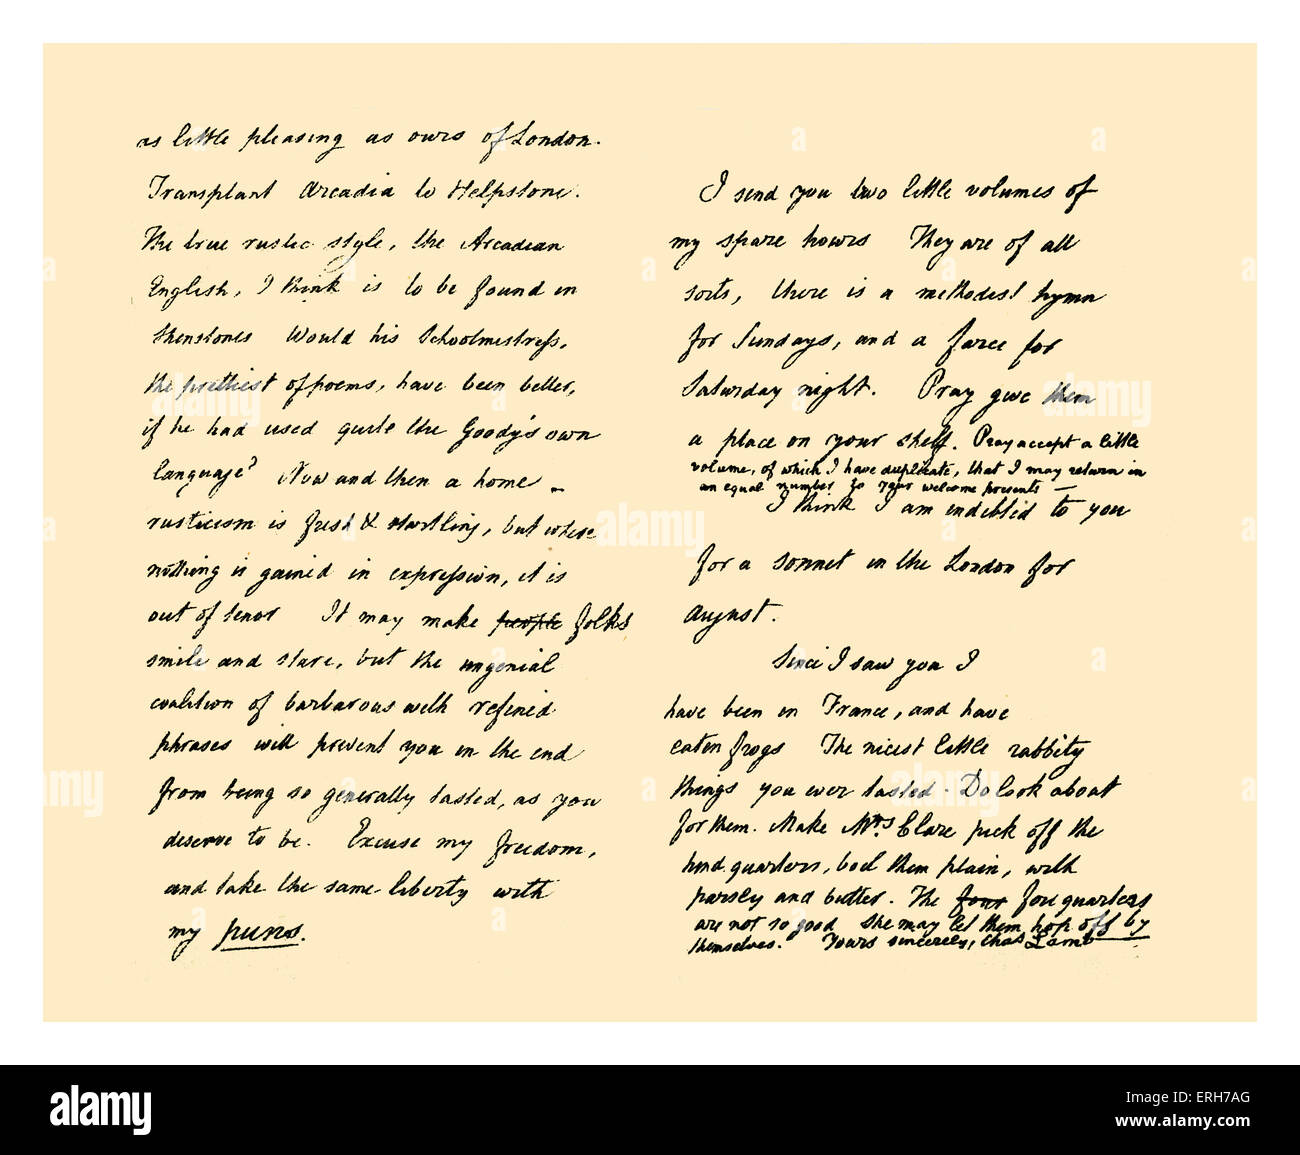 as little pleasing as ours of London.
Transplant Arcadia to Helpstone.
The true rustic style, the Arcadian
English, I think is to be found in
Shenstones Would his Schoolmistress,
the prettiest of poems, have been better,
if he had used quite the Goody's own
language? Now and then a home
rusticism is fresh & startling, but where
nothing is gained in expression, it is
out of tenor It may make people folks
smile and stare, but the ungenial
coalition of barbarous with refined
phrases will prevent you in the end
from being so generally tasted, as you
deserve to be. Excuse my freedom,
and take the same liberty with
my puns.
I send you two little volumes of
my spare hours They are of all
sorts, there is a methodist hymn
for Sundays, and a farce for
Saturday night. Pray give them
a place on your shelf. Pray accept a little
volume, of which I have duplicate, that I may return in
an equal number to your welcome presents —
I think I am indebted to you
for a sonnet in the London for
August.
Since I saw you I
have been in France, and have
eaten frogs The nicest little rabbity
things you ever tasted. Do look about
for them. Make Mrs. Clare pick off the
hind quarters, boil them plain, with
parsley and butter. The four fore quarters
are not so good She may let them hop off by
themselves. Yours sincerely, Chas Lamb
alamy
Image ID: ERH7AG
www.alamy.com